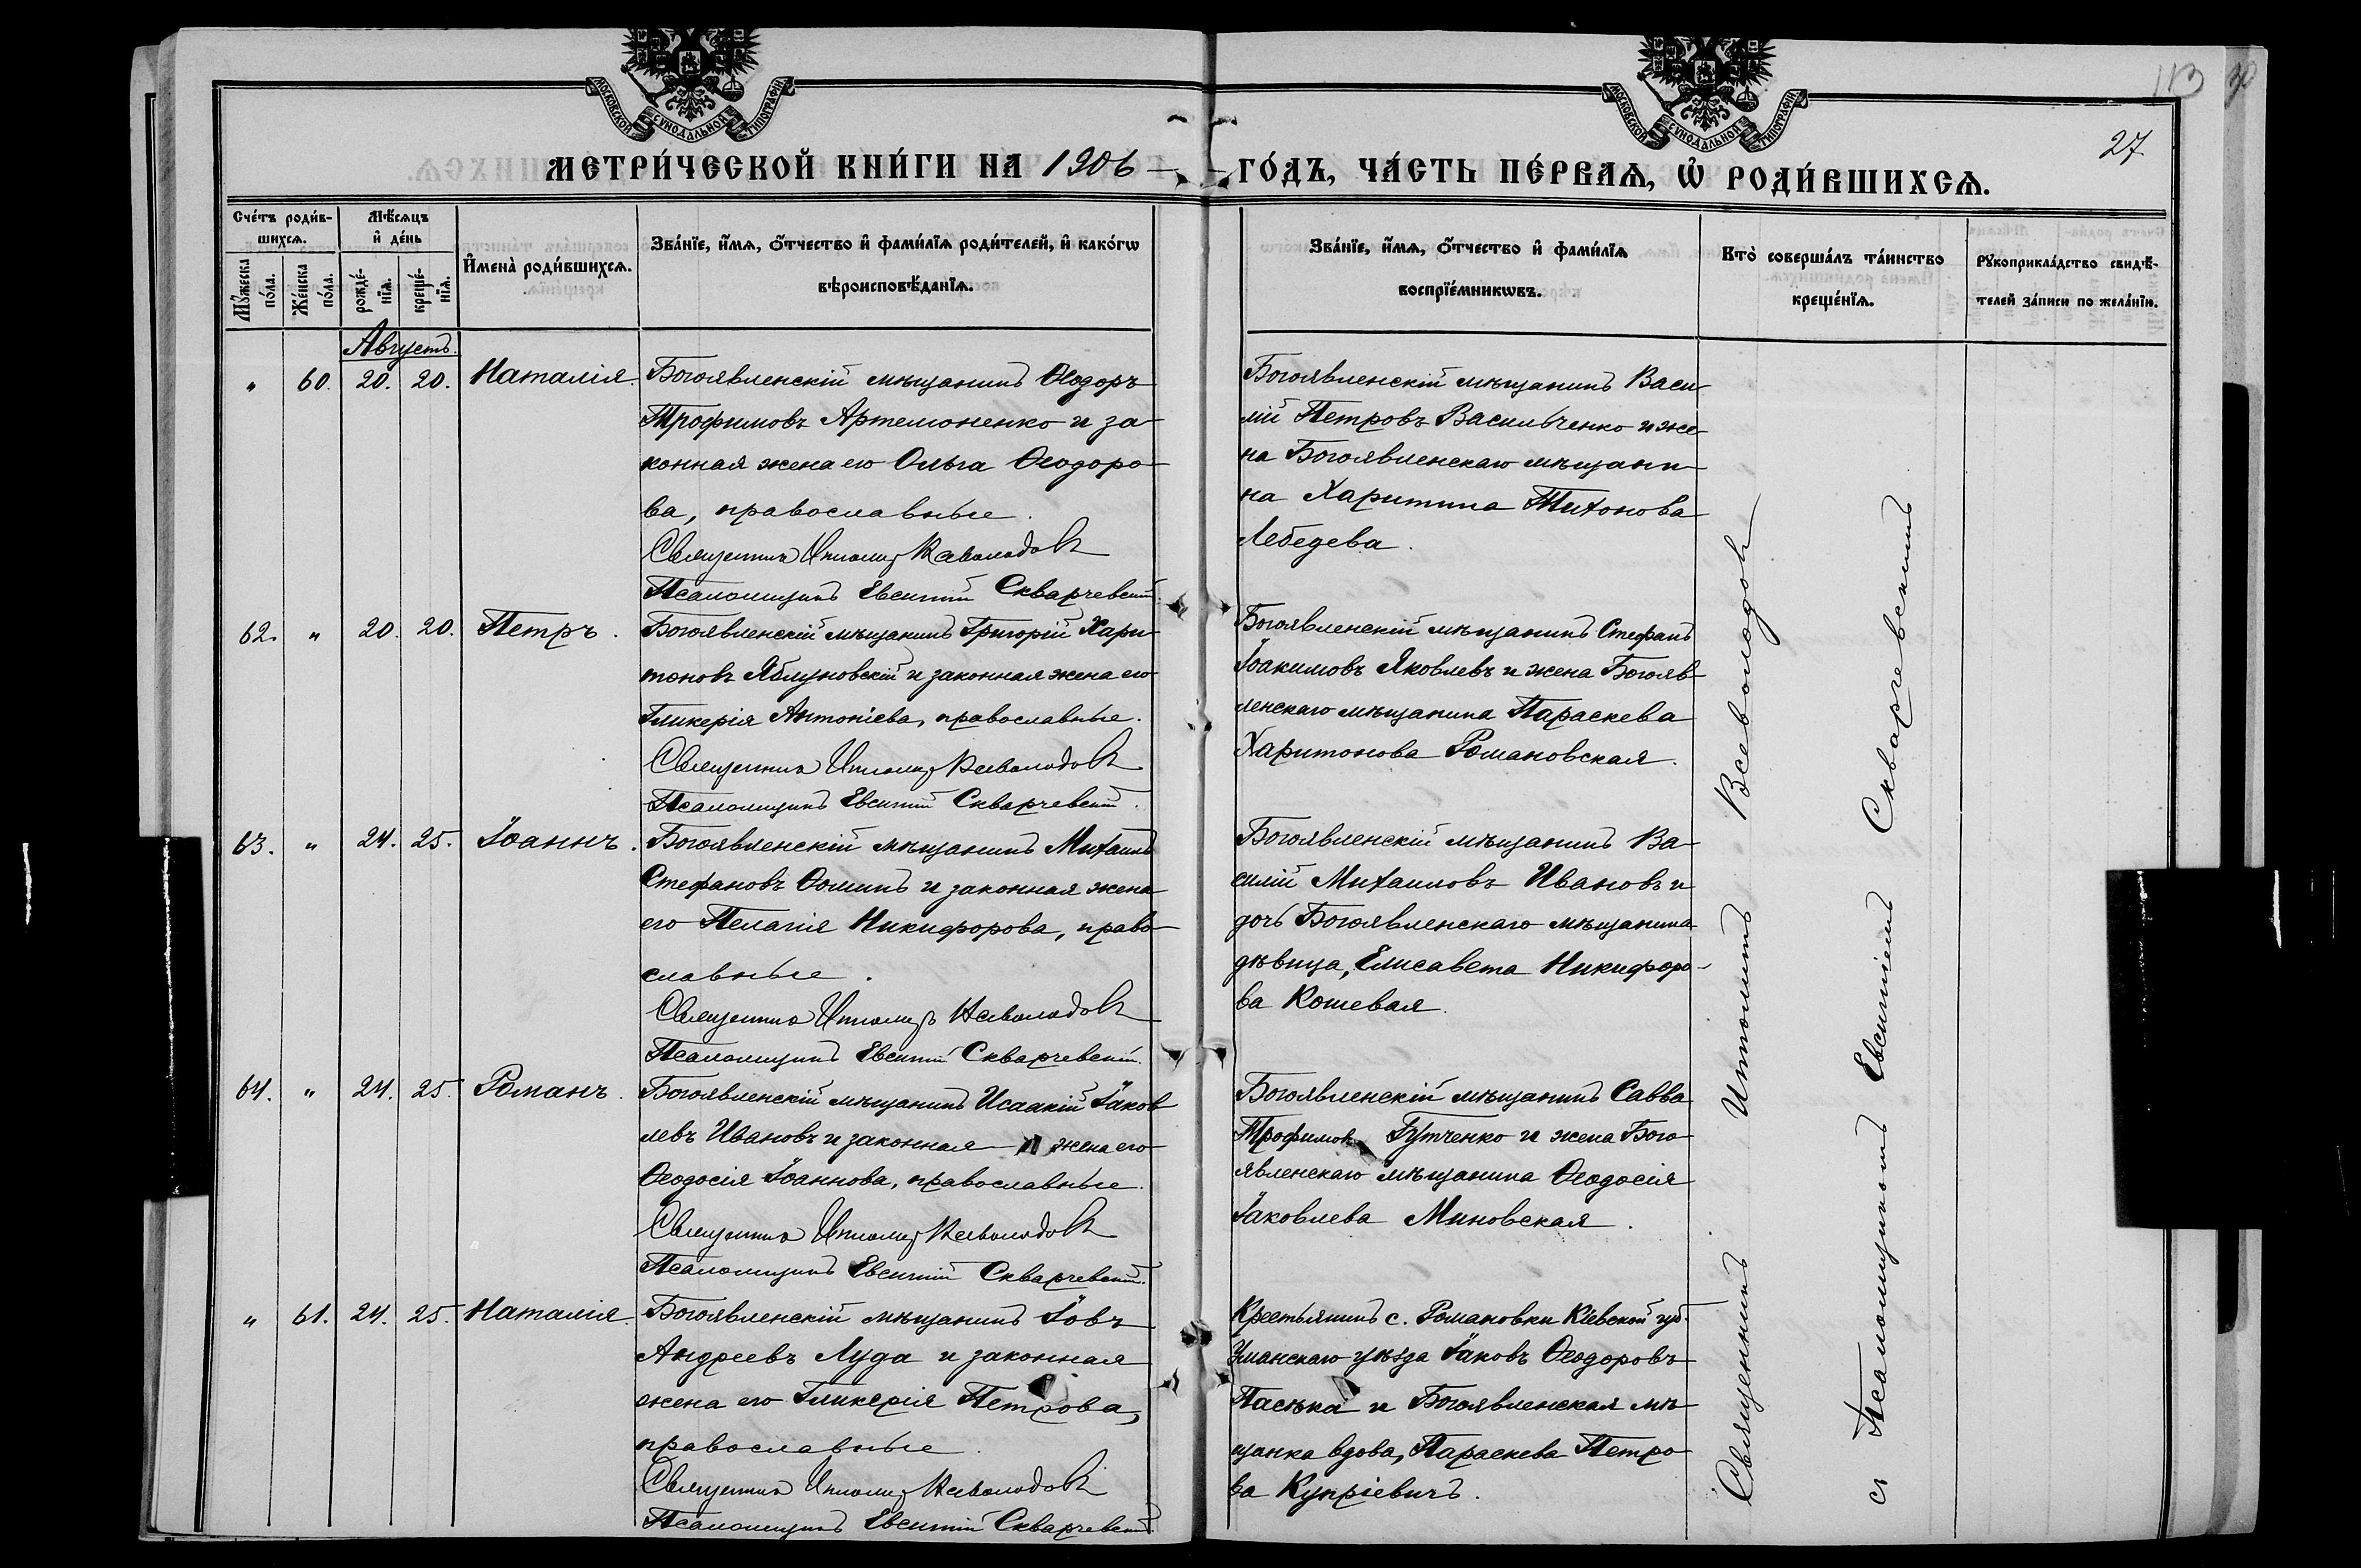 МОСКОВСКОЙ СѴНОДАЛЬНОЙ ТИПОГРАФІИ
МОСКОВСКОЙ СѴНОДАЛЬНОЙ ТИПОГРАФІИ
113
27
МЕТРИ́ЧЕСКОЙ КНИ́ГИ НА 1906
ГО́ДЪ, ЧА́СТЬ ПЕ́РВАѦ, Ѡ҆ РОДИ́ВШИХСѦ.
Сче́тъ роди́в-
шихсѧ.
Мꙋ́жеска по́ла.
Же́нска по́ла.
Мѣ́сѧцъ
и҆ де́нь
рожде́-
нїѧ.
креще́-
нїѧ.
И҆мена̀ роди́вшихсѧ.
Зва́нїе, и҆́мѧ, ѻ҆́тчество и҆ фами́лїѧ роди́телей, и҆ како́гѡ
вѣроисповѣ́данїѧ.
Зва́нїе, и҆́мѧ, ѻ҆́тчество и҆ фами́лїѧ
воспрїе́мникѡвъ.
Кто̀ соверша́лъ та́инство
креще́нїѧ.
Рꙋкоприкла́дство свидѣ́-
телей за́писи по жела́нїю.
Августъ.
" 60. 20. 20. Наталія.
Богоявленскій мѣщанинъ Ѳеодоръ
Трофимовъ Артемоненко и за-
конная жена его Ольга Ѳеодоро-
ва, православные.
Священникъ Ипполитъ Всеволодовъ
Псаломщикъ Евсигній Скварчевскій.
Богоявленскій мѣщанинъ Васи-
лій Петровъ Васильченко и же-
на Богоявленскаго мѣщани-
на Харитина Тихонова
Лебедева.
62. " 20. 20. Петръ.
Богоявленскій мѣщанинъ Григорій Хари-
тоновъ Яблуновскій и законная жена его
Гликерія Антоніева, православные.
Священникъ Ипполитъ Всеволодовъ
Псаломщикъ Евсигній Скварчевскій.
Богоявленскій мѣщанинъ Стефанъ
Іоакимовъ Яковлевъ и жена Богояв-
ленскаго мѣщанина Параскева
Харитонова Романовская.
63. " 24. 25. Іоаннъ.
Богоявленскій мѣщанинъ Михаилъ
Стефановъ Ѳоминъ и законная жена
его Пелагія Никифорова, право-
славные.
Священникъ Ипполитъ Всеволодовъ
Псаломщикъ Евсигній Скварчевскій.
Богоявленскій мѣщанинъ Ва-
силій Михаиловъ Ивановъ и
дочь Богоявленскаго мѣщанина
дѣвица, Елисавета Никифоро-
ва Кошевая.
64. " 24. 25. Романъ.
Богоявленскій мѣщанинъ Исаакій Іаков-
левъ Ивановъ и законная жена его
Ѳеодосія Іоаннова, православные.
Священникъ Ипполитъ Всеволодовъ
Псаломщикъ Евсигній Скварчевскій.
Богоявленскій мѣщанинъ Савва
Трофимовъ Гутченко и жена Бого-
явленскаго мѣщанина Ѳеодосія
Іаковлева Миновская.
" 61. 24. 25. Наталія.
Богоявленскій мѣщанинъ Іовъ
Андреевъ Луда и законная
жена его Гликерія Петрова,
православные.
Священникъ Ипполитъ Всеволодовъ
Псаломщикъ Евсигній Скварчевскій.
Крестьянинъ с. Романовки Кіевской губ.
Уманскаго уѣзда Іаковъ Ѳеодоровъ
Пасѣка и Богоявленская мѣ-
щанка вдова, Параскева Петро-
ва Купріевичъ.
Священникъ Ипполитъ Всеволодовъ
съ Псаломщикомъ Евсигніемъ Скварчевскимъ